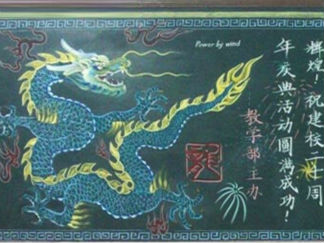 輝煌！祝建校二十周
年庆典活动圓满成功！
教学部主办
龍
Power by wind